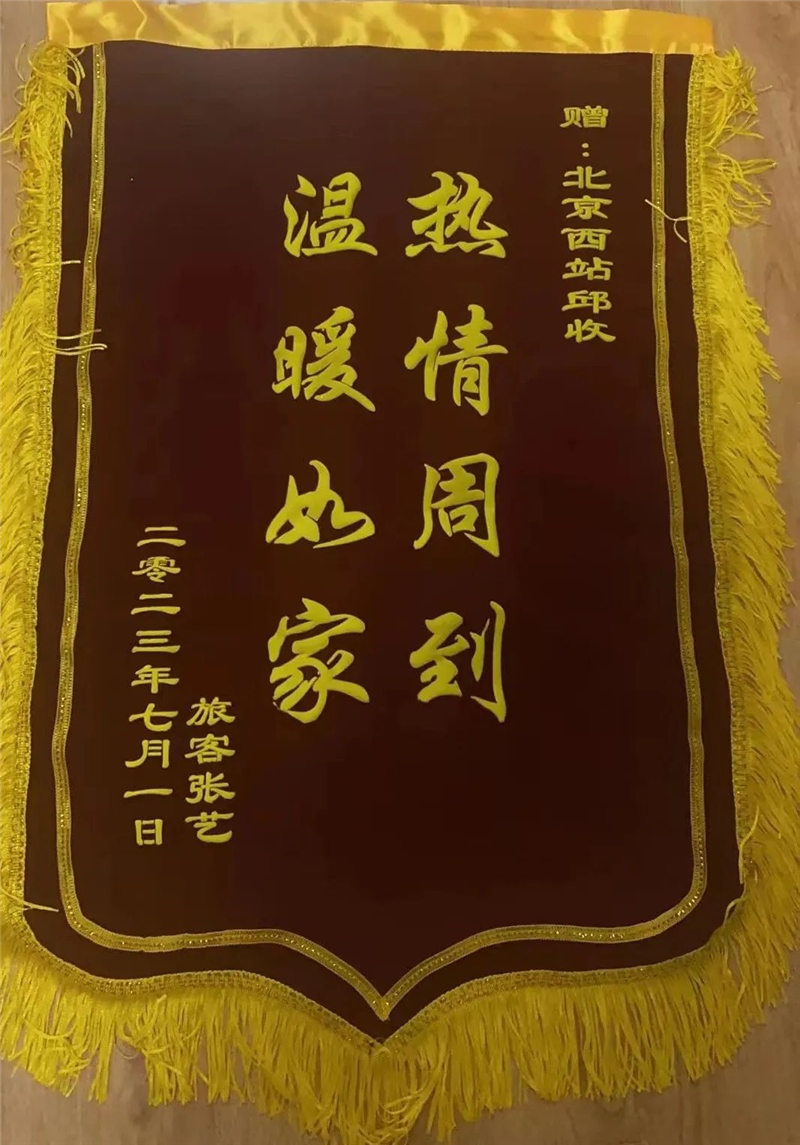 赠：北京西站邱收
热情周到
温暖如家
旅客张艺
二零二三年七月一日